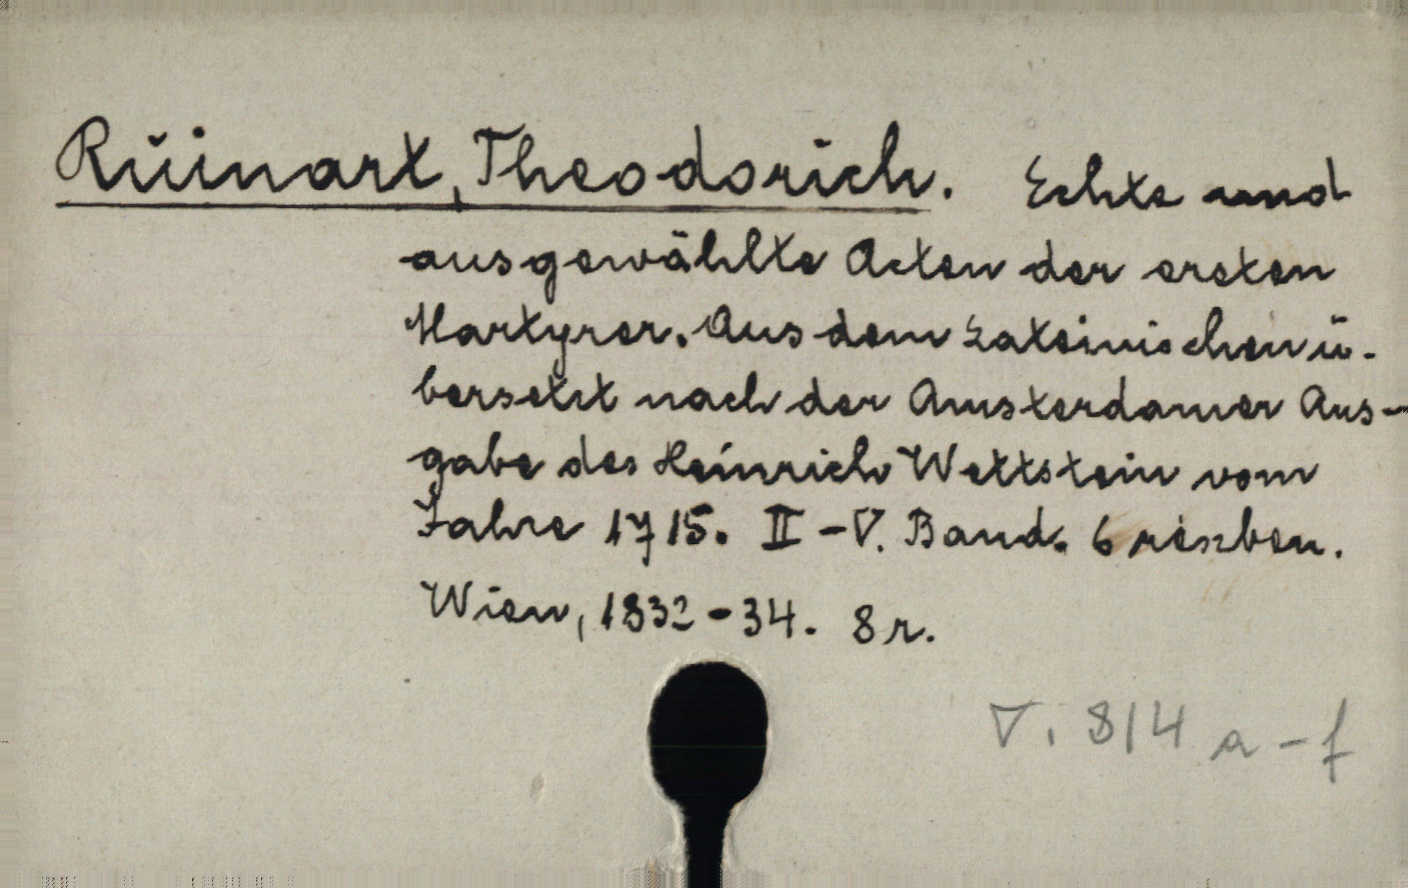 Rŭinart, Theodorich. Echte und
ausgewählte Acten der ersten
Martyrer. Aus dem Lateinischen ü-
bersetzt nach der Amsterdamer Aus-
gabe des Heinrich Wettstein vom
Jahre 1715. II-V. Band. 6 részben.
Wien, 1832-34. 8r.
V. 814 a-f